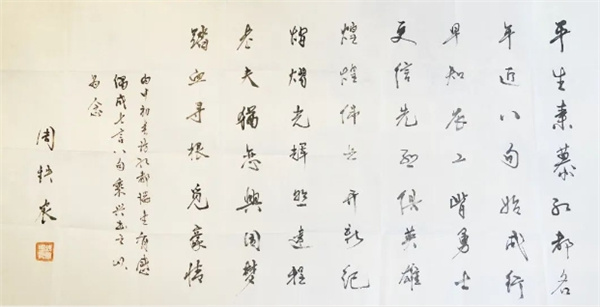 平生素慕红都名
年近八旬始成行
早知农工皆勇士
更信先烈俱英雄
煌煌伟业开新纪
熠熠光辉照远程
老夫犹恋兴国梦
踏血寻根觅豪情
丙申初访红都瑞金有感
偶成七言八句乘兴书之以
为念
周铁农